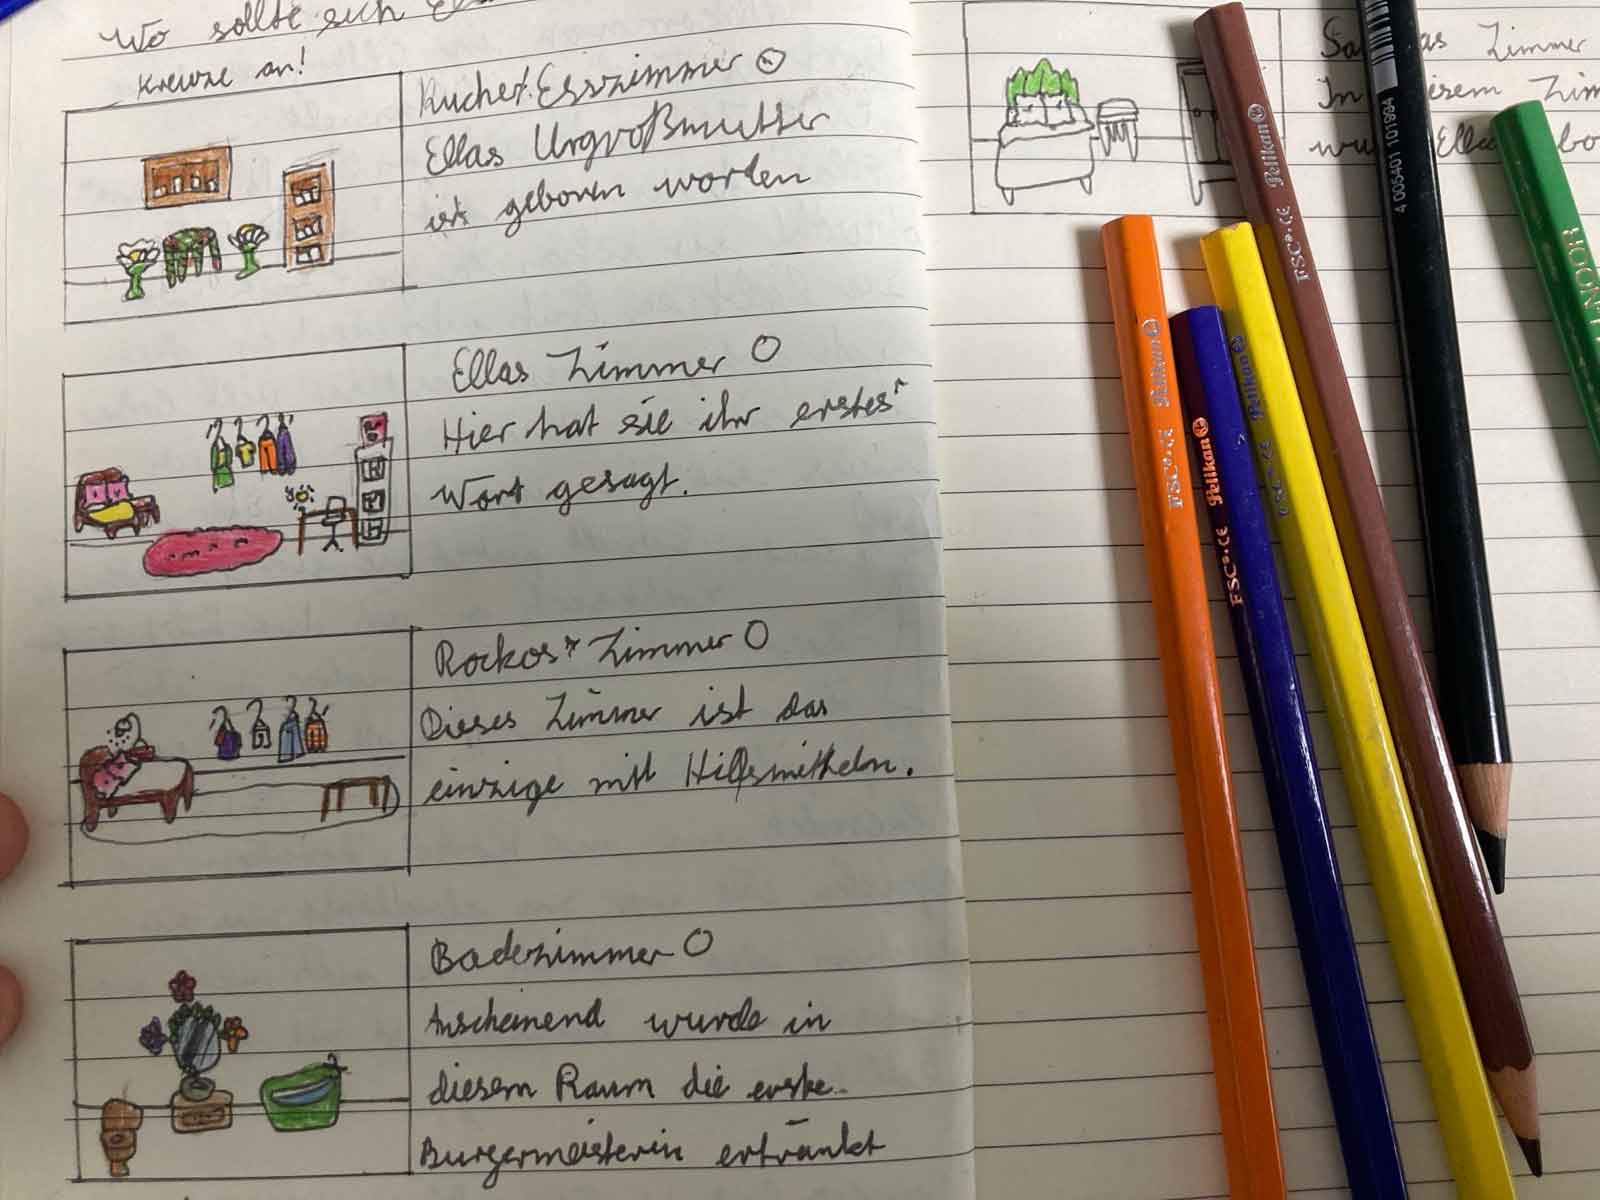 Wo sollte sich
Kreuze an!
Küche/Esszimmer
Ellas Urgroßmutter
ist geboren worden
Ellas Zimmer
Hier hat sie ihr erstes
Wort gesagt.
Rockos Zimmer
Dieses Zimmer ist das
einzige mit Hilfsmitteln.
Badezimmer
Anscheinend wurde in
diesem Raum die erste
Burgermeisterin ertränkt
Zimmer
In
Pelikan
FSC® CE
Pelikan
FSC® CE
Pelikan
FSC® CE
Pelikan
FSC® CE
4 005401 101994